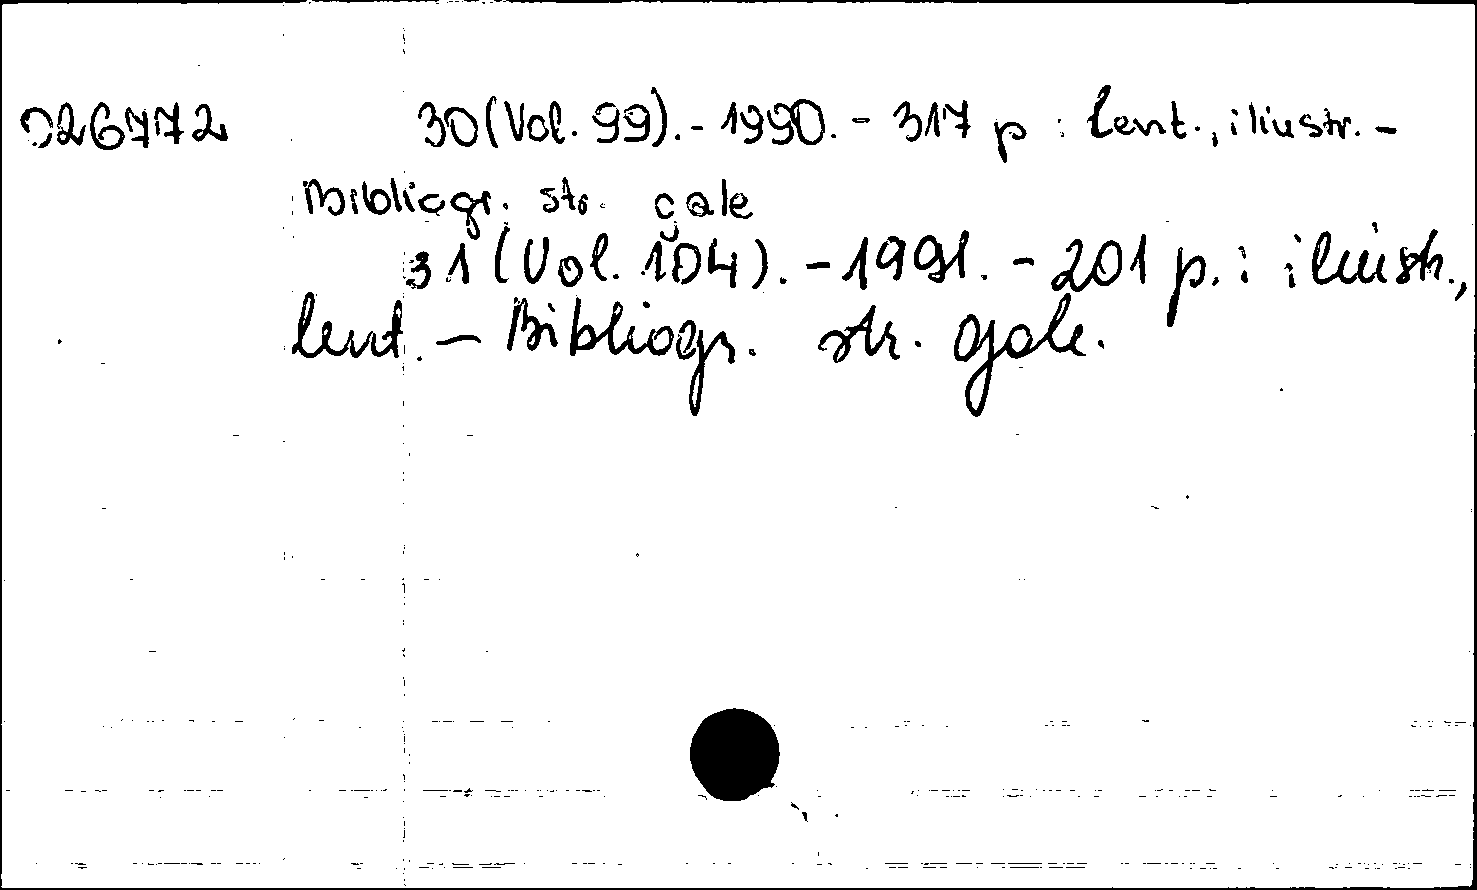 026772 30(Vol. 99).- 1990. - 317 p : lent., iliustr. -
Bibliogr. str. gale
31 (Vol. 104). - 1991. - 201 p. : iliustr.,
lent. - Bibliogr. str. gale.